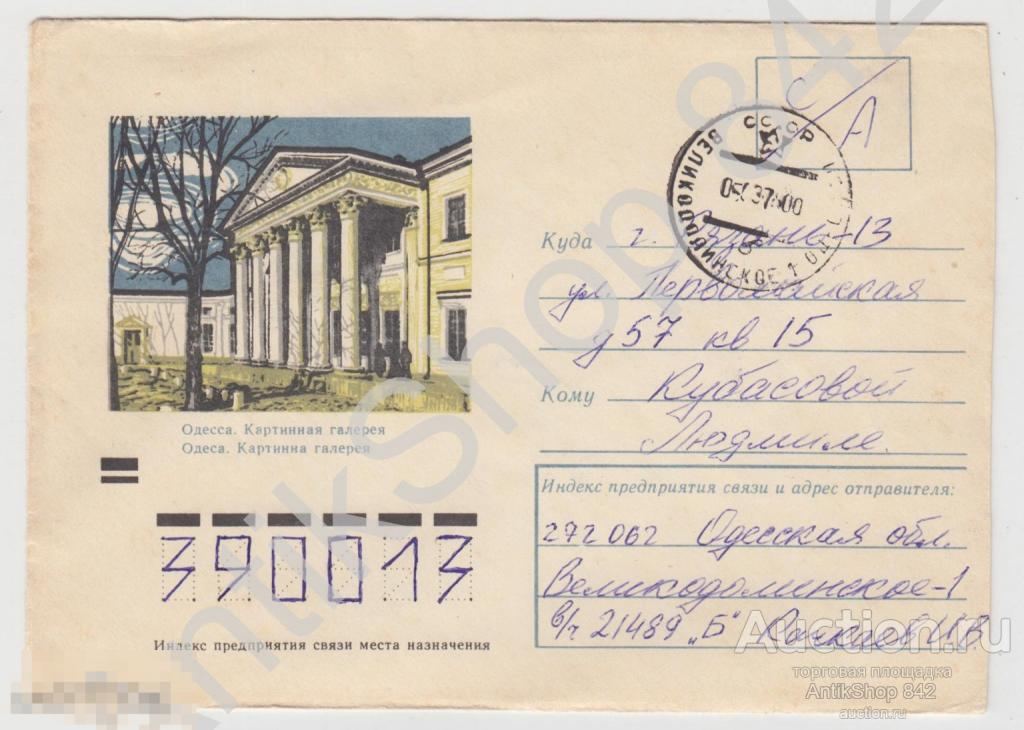 С/А
СССР
ВЕЛИКОДОЛИНСКОЕ 1 ОДЕС
Куда г. Рязань-13
ул. Первомайская
д 57 кв 15
Кому Кубасовой
Людмиле.
Одесса. Картинная галерея
Одеса. Картинна галерея
Индекс предприятия связи и адрес отправителя:
272062 Одесская обл.
Великодолинское-1
в/ч 21489 „Б"
390013
Индекс предприятия связи места назначения
Auction.ru
торговая площадка
AntikShop 842
auction.ru
AntikShop 842